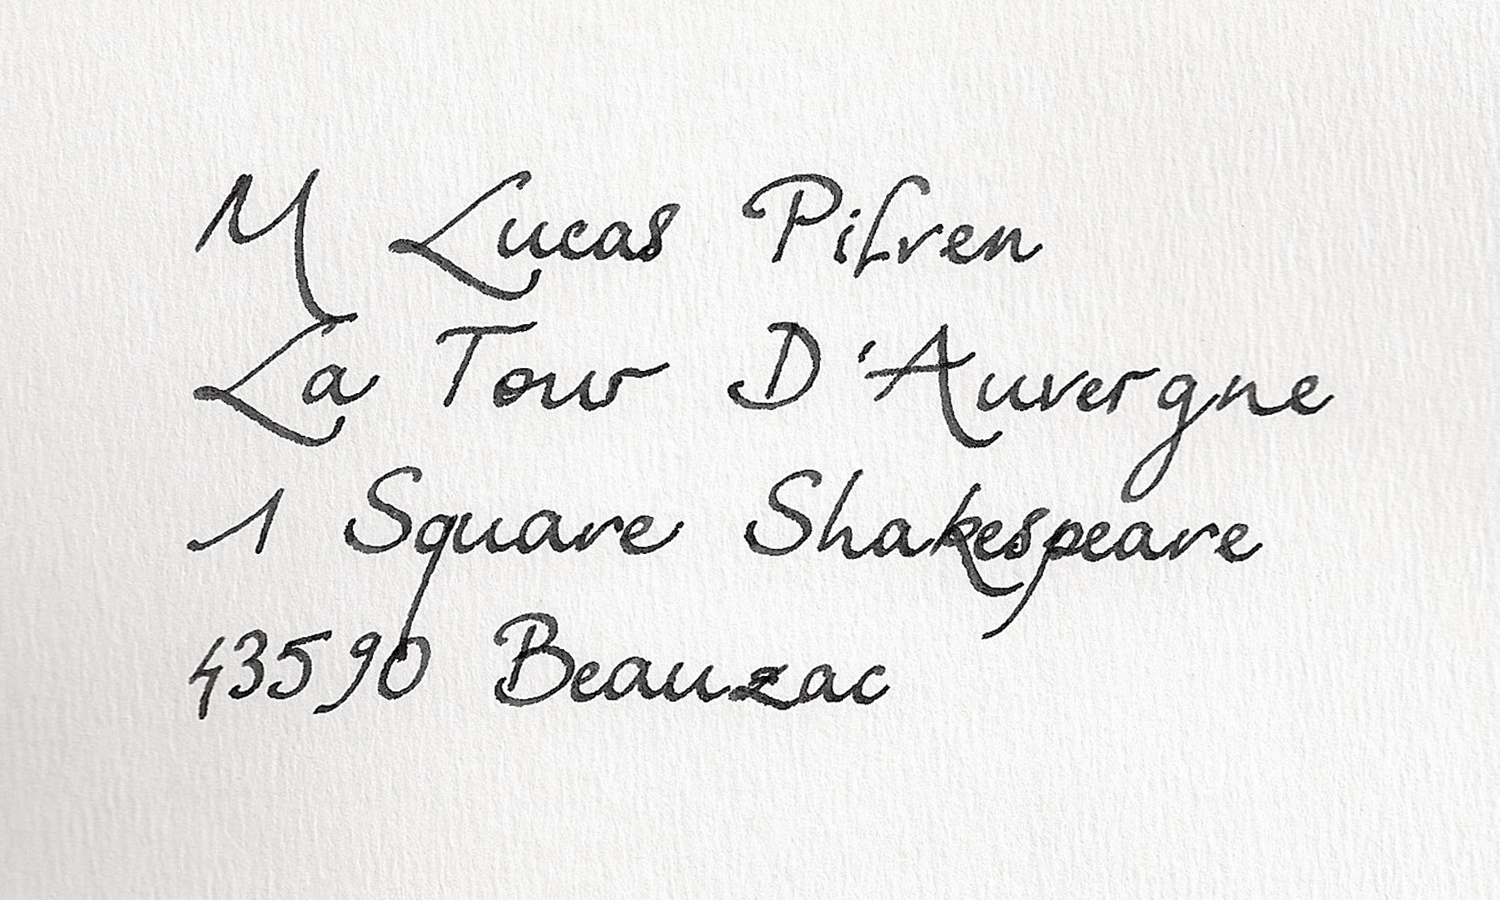 M Lucas Pilven
La Tour D'Auvergne
1 Square Shakespeare
43590 Beauzac